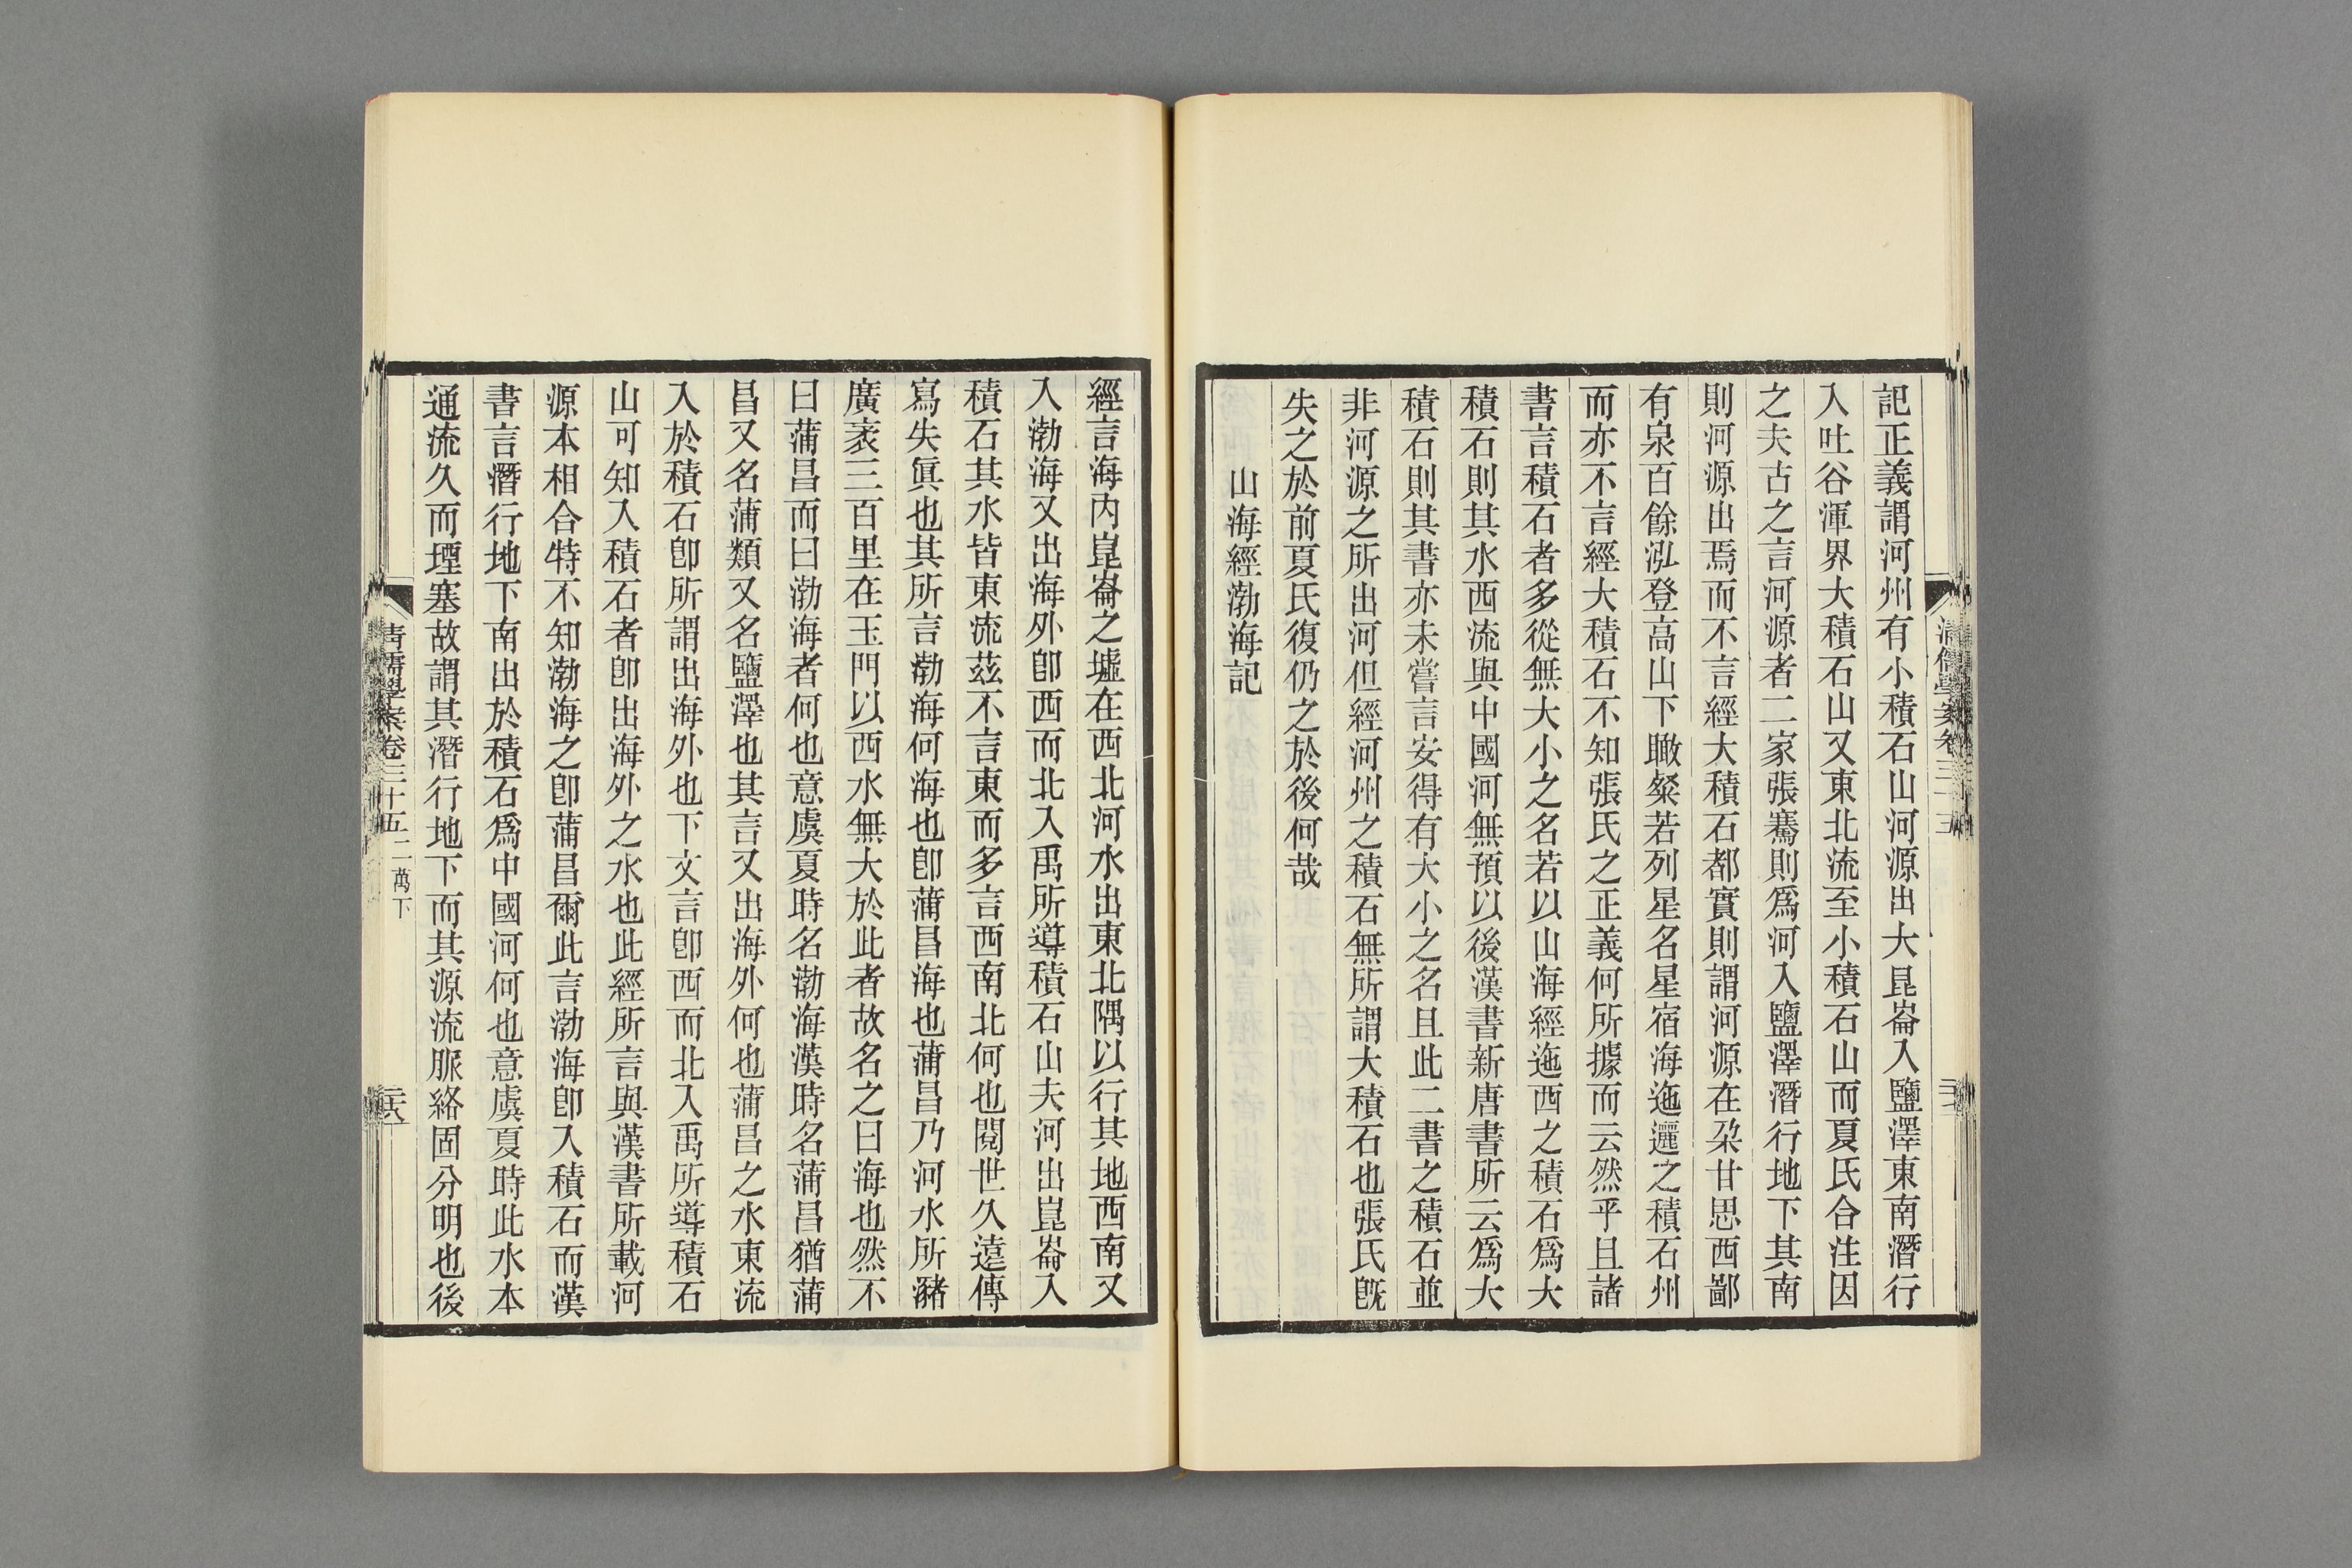 記正義謂河州有小積石山河源出大昆崙入鹽澤東南潛行
入吐谷渾界大積石山又東北流至小積石山而夏氏合注因
之夫古之言河源者二家張騫則爲河入鹽澤潛行地下其南
則河源出焉而不言經大積石都實則謂河源在朶甘思西鄙
有泉百餘泓登高山下瞰粲若列星名星宿海迤邐之積石州
而亦不言經大積石不知張氏之正義何所據而云然乎且諸
書言積石者多從無大小之名若以山海經迤西之積石爲大
積石則其水西流與中國河無預以後漢書新唐書所云爲大
積石則其書亦未嘗言安得有大小之名且此二書之積石並
非河源之所出河但經河州之積石無所謂大積石也張氏旣
失之於前夏氏復仍之於後何哉
山海經渤海記
經言海內崑崙之墟在西北河水出東北隅以行其地西南又
入渤海又出海外卽西而北入禹所導積石山夫河出崑崙入
積石其水皆東流茲不言東而多言西南北何也閱世久遠傳
寫失眞也其所言渤海何海也卽蒲昌海也蒲昌乃河水所豬
廣袤三百里在玉門以西水無大於此者故名之曰海也然不
曰蒲昌而曰渤海者何也意虞夏時名渤海漢時名蒲昌猶蒲
昌又名蒲類又名鹽澤也其言又出海外何也蒲昌之水東流
入於積石卽所謂出海外也下文言卽西而北入禹所導積石
山可知入積石者卽出海外之水也此經所言與漢書所載河
源本相合特不知渤海之卽蒲昌爾此言渤海卽入積石而漢
書言潛行地下南出於積石爲中國河何也意虞夏時此水本
通流久而堙塞故謂其潛行地下而其源流脈絡固分明也後
清儒學案卷三十五二萬下